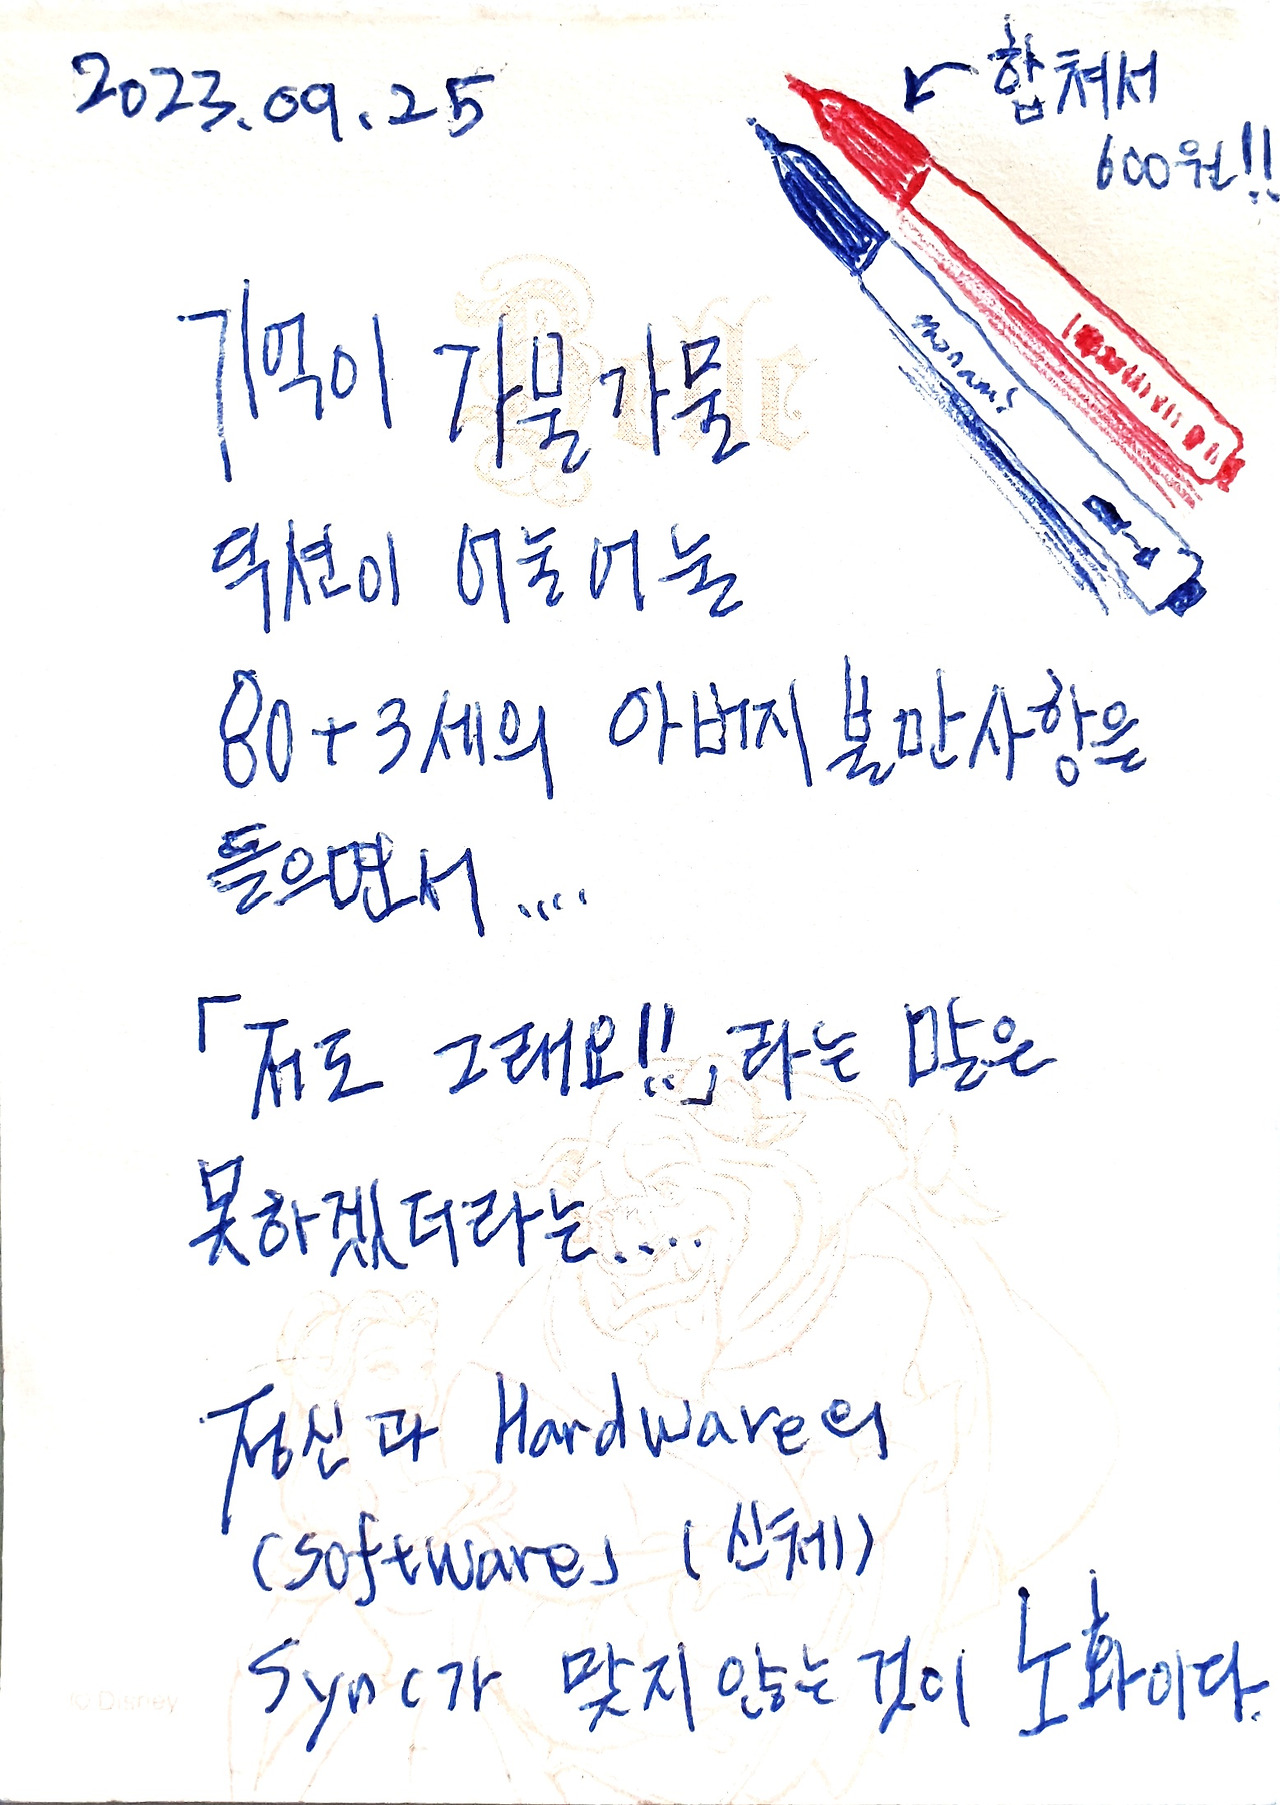 2023.09.25
합쳐서
600원!!
monami
기억이 가물가물
Belle
액션이 어눌어눌
80+3세의 아버지 불만사항은
들으면서 ....
「저도 그래요!!」라는 말은
못하겠더라는....
정신과 Hardware의
(Software」 (신체)
Sync가 맞지 않는 것이 노화이다.
© Disney